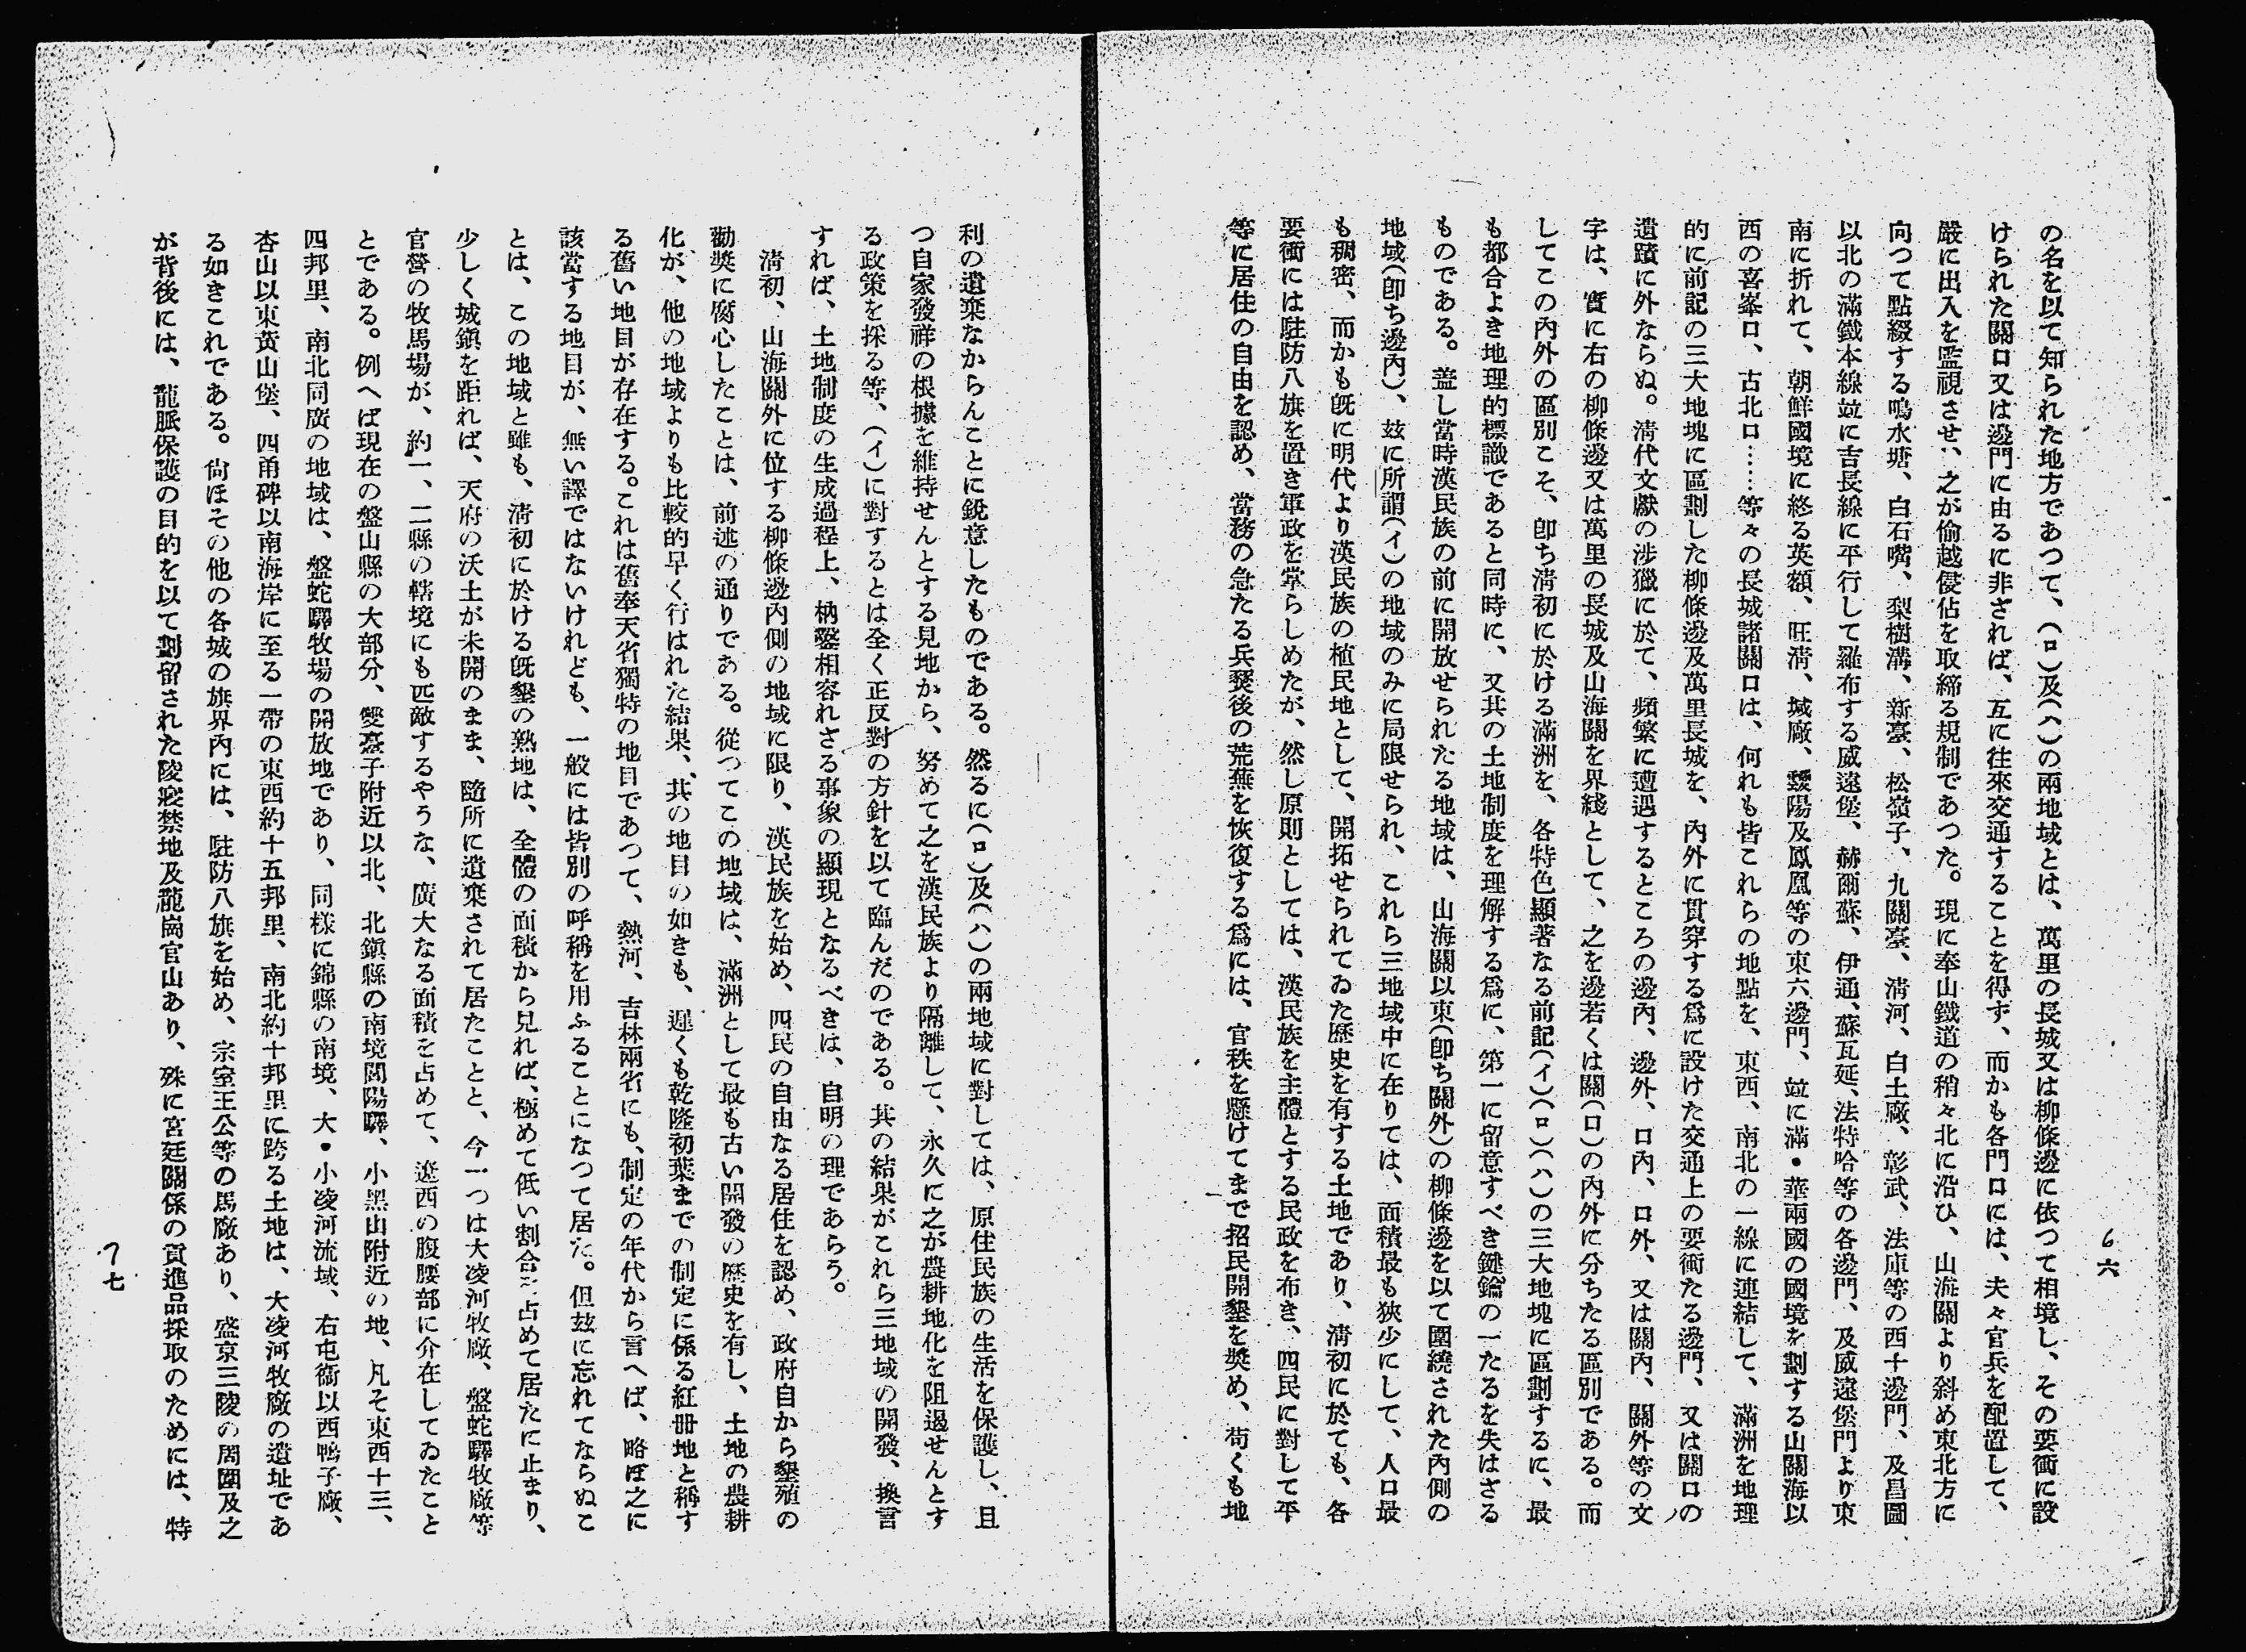 の名を以て知られた地方であつて、(ロ)及(ハ)の兩地域とは、萬里の長城又は柳條邊に依つて相境し、その要衝に設
けられた關口又は邊門に由るに非ざれば、互に往來交通することを得ず、而かも各門口には、夫々官兵を配置して、
嚴に出入を監視させ、之が偷越侵佔を取締る規制であつた。現に奉山鐵道の稍々北に沿ひ、山海關より斜め東北方に
向つて點綴する鳴水塘、白石嘴、梨樹溝、新臺、松嶺子、九關臺、淸河、白土廠、彰武、法庫等の西十邊門、及昌圖
以北の滿鐵本線竝に吉長線に平行して羅布する威遠堡、赫爾蘇、伊通、蘇瓦延、法特哈等の各邊門、及威遠堡門より東
南に折れて、朝鮮國境に終る英額、旺淸、堿廠、靉陽及鳳凰等の東六邊門、竝に滿・華兩國の國境を劃する山關海以
西の喜峯口、古北口……等々の長城諸關口は、何れも皆これらの地點を、東西、南北の一線に連結して、滿洲を地理
的に前記の三大地塊に區劃した柳條邊及萬里長城を、內外に貫穿する爲に設けた交通上の要衝たる邊門、又は關口の
遺蹟に外ならぬ。淸代文獻の涉獵に於て、頻繁に遭遇するところの邊內、邊外、口內、口外、又は關內、關外等の文
字は、實に右の柳條邊又は萬里の長城及山海關を界綫として、之を邊若くは關(口)の內外に分ちたる區別である。而
してこの內外の區別こそ、卽ち淸初に於ける滿洲を、各特色顯著なる前記(イ)(ロ)(ハ)の三大地塊に區劃するに、最
も都合よき地理的標識であると同時に、又其の土地制度を理解する爲に、第一に留意すべき鍵鑰の一たるを失はざる
ものである。蓋し當時漢民族の前に開放せられたる地域は、山海關以東(卽ち關外)の柳條邊を以て圍繞された內側の
地域(卽ち邊內)、玆に所謂(イ)の地域のみに局限せられ、これら三地域中に在りては、面積最も狹少にして、人口最
も稠密、而かも旣に明代より漢民族の植民地として、開拓せられてゐた歷史を有する土地であり、淸初に於ても、各
要衝には駐防八旗を置き軍政を掌らしめたが、然し原則としては、漢民族を主體とする民政を布き、四民に對して平
等に居住の自由を認め、當務の急たる兵燹後の荒蕪を恢復する爲には、官秩を懸けてまで招民開墾を奬め、苟くも地
6六
利の遺棄なからんことに銳意したものである。然るに(ロ)及(ハ)の兩地域に對しては、原住民族の生活を保護し、且
つ自家發祥の根據を維持せんとする見地から、努めて之を漢民族より隔離して、永久に之が農耕地化を阻遏せんとす
る政策を採る等、(イ)に對するとは全く正反對の方針を以て臨んだのである。其の結果がこれら三地域の開發、換言
すれば、土地制度の生成過程上、枘鑿相容れざる事象の顯現となるべきは、自明の理であらう。
淸初、山海關外に位する柳條邊內側の地域に限り、漢民族を始め、四民の自由なる居住を認め、政府自から墾殖の
勸奬に腐心したことは、前述の通りである。從つてこの地域は、滿洲として最も古い開發の歷史を有し、土地の農耕
化が、他の地域よりも比較的早く行はれた結果、其の地目の如きも、遲くも乾隆初葉までの制定に係る紅册地と稱す
る舊い地目が存在する。これは舊奉天省獨特の地目であつて、熱河、吉林兩省にも、制定の年代から言へば、略ぼ之に
該當する地目が、無い譯ではないけれども、一般には皆別の呼稱を用ふることになつて居た。但玆に忘れてならぬこ
とは、この地域と雖も、淸初に於ける旣墾の熟地は、全體の面積から見れば、極めて低い割合を占めて居たに止まり、
少しく城鎭を距れば、天府の沃土が未開のまま、隨所に遺棄されて居たことと、今一つは大凌河牧廠、盤蛇驛牧廠等
官營の牧馬場が、約一、二縣の轄境にも匹敵するやうな、廣大なる面積を占めて、遼西の腹腰部に介在してゐたこと
とである。例へば現在の盤山縣の大部分、雙臺子附近以北、北鎭縣の南境閭陽驛、小黑山附近の地、凡そ東西十三、
四邦里、南北同廣の地域は、盤蛇驛牧場の開放地であり、同樣に錦縣の南境、大・小凌河流域、右屯衞以西鴨子廠、
杏山以東黃山堡、四甬碑以南海岸に至る一帶の東西約十五邦里、南北約十邦里に跨る土地は、大凌河牧廠の遺址であ
る如きこれである。尙ほその他の各城の旗界內には、駐防八旗を始め、宗室王公等の馬廠あり、盛京三陵の周圍及之
が背後には、龍脈保護の目的を以て劃留された陵寢禁地及龍崗官山あり、殊に宮廷關係の貢進品採取のためには、特
7七